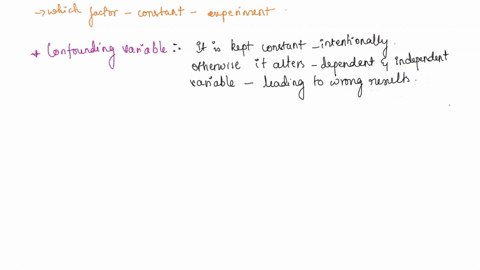 → which factor - constant - experiment.
* Confounding variable :- It is kept constant - intentionally.
otherwise it alters - dependent & independent
variable - leading to wrong results.